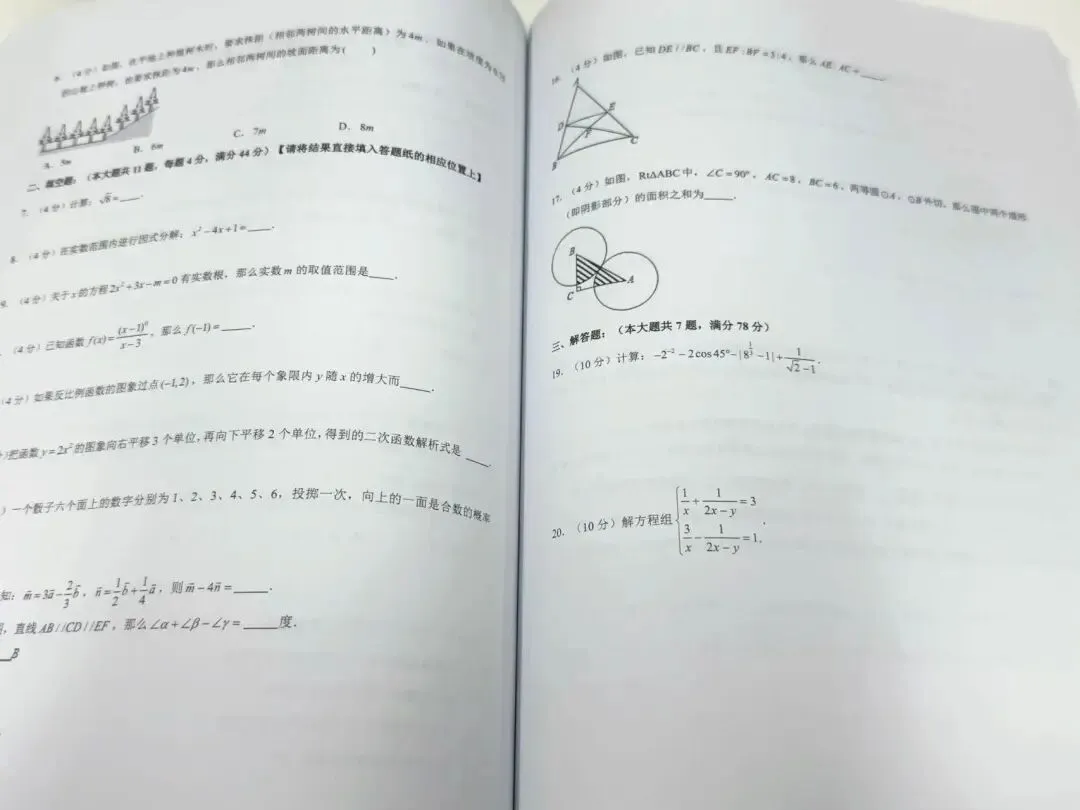 6. (4分)如图，在平地上种植树木时，要求株距（相邻两树间的水平距离）为4m．如果在坡度为
的山坡上种树，也要求株距为4m，那么相邻两树间的坡面距离为( )
A. 5m B. 6m C. 7m D. 8m
二、填空题：（本大题共11题，每题4分，满分44分）【请将结果直接填入答题纸的相应位置上】
7. (4分)计算：√8=____.
8. (4分)在实数范围内进行因式分解：x²−4x+1=____.
9. (4分)关于x的方程2x²+3x−m=0有实数根，那么实数m的取值范围是____.
(4分)已知函数f(x)=(x−1)⁰/(x−3)，那么f(−1)=____.
(4分)如果反比例函数的图象过点(−1,2)，那么它在每个象限内y随x的增大而____.
)把函数y=2x²的图象向右平移3个单位,再向下平移2个单位,得到的二次函数解析式是____.
)一个骰子六个面上的数字分别为1、2、3、4、5、6，投掷一次，向上的一面是合数的概率
知：m⃗=3a⃗−2/3b⃗，n⃗=1/2b⃗+1/4a⃗，则m⃗−4n⃗=____.
，直线AB//CD//EF，那么∠α+∠β−∠γ=____度.
B
16. (4分)如图，已知DE//BC，且EF:BF=3:4，那么AE:AC=____.
A
D E
F
B C
17. (4分)如图，Rt△ABC中，∠C=90°，AC=8，BC=6，两等圆⊙A，⊙B外切，那么图中两个扇形
(即阴影部分)的面积之和为____.
B
C A
三、解答题：（本大题共7题，满分78分）
19. (10分)计算：−2⁻²−2cos45°−|8^(1/3)−1|+1/(√2−1).
20. (10分)解方程组{1/x+1/(2x−y)=3
3/x−1/(2x−y)=1.